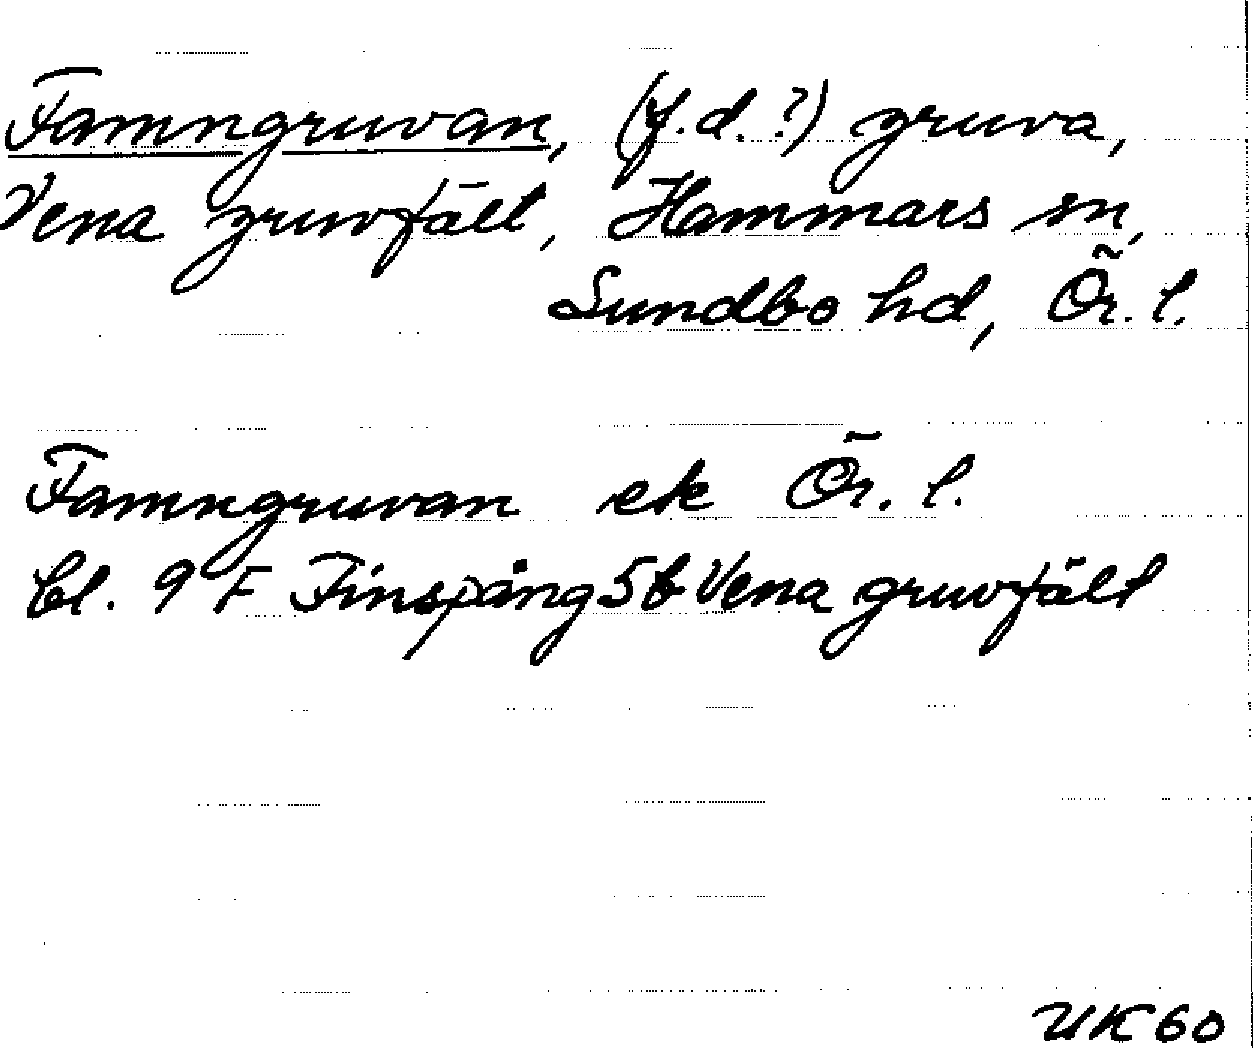 Famngruvan, (f.d.?) gruva,
Vena gruvfält, Hammars sn,
Sundbo hd, Ör. l.
Famngruvan ek Ör. l.
bl. 9 F Finspång 5b Vena gruvfält
UK 60